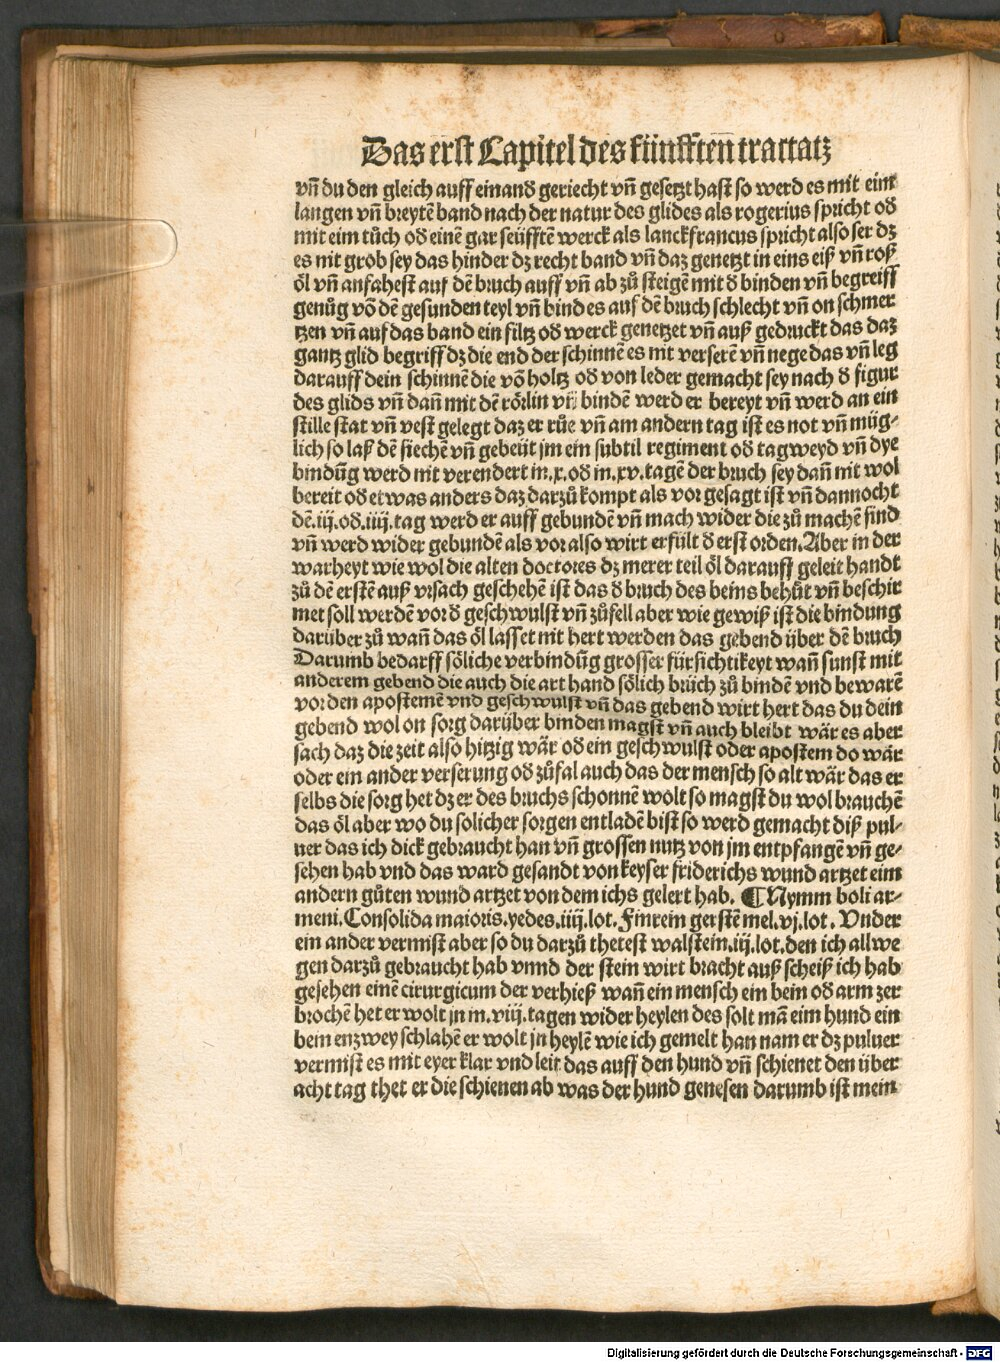 Das erst Capitel des fünfften tractatz
vñ du den gleich auff einand geriecht vñ gesetzt hast so werd es mit eim
langen vñ breytē band nach der natur des glides als rogerius spricht od
mit eim tůch od einē gar seüfftē werck als lanckfrancus spricht also ser dz
es nit grob sey das hinder dz recht band vñ daz genetzt in eins eiß vñ roß
öl vñ anfahest auf dē bruch auff vñ ab zů steigē mit d binden vñ begreiff
genůg vō dē gesunden teyl vñ bind es auf dē bruch schlecht vñ on schmer
tzen vñ auf das band ein filtz od werck genetzet vñ auß gedruckt das daz
gantz glid begriff dz die end der schinnē es nit verserē vñ nege das vñ leg
darauff dein schinnē die vō holtz od von leder gemacht sey nach d figur
des glids vñ dañ mit dē rörlin vñ bindē werd er bereyt vñ werd an ein
stille stat vñ vest gelegt daz er růe vñ am andern tag ist es not vñ müg-
lich so laß dē siechē vñ gebeüt jm ein subtil regiment od tagweyd vñ dye
bindūg werd nit verendert in .x. od in .xv. tagē der bruch sey dañ nit wol
bereit od etwas anders daz darzů kompt als vor gesagt ist vñ dannocht
dē .iij. od .iiij. tag werd er auff gebundē vñ mach wider die zů machē sind
vñ werd wider gebundē als vor also wirt erfült d erst orden. Aber in der
warheyt wie wol die alten doctores dz merer teil öl darauff geleit handt
zů dē erstē auß vrsach geschehē ist das d bruch des beins behůt vñ beschir
met soll werdē vor d geschwulst vñ zůfell aber wie gewiß ist die bindung
darüber zů wañ das öl lasset nit hert werden das gebend über dē bruch
Darumb bedarff söliche verbindūg grosser fürsichtikeyt wañ sunst mit
anderem gebend die auch die art hand sölich brüch zů bindē vnd bewarē
vor den apostemē vnd geschwulst vñ das gebend wirt hert das du dein
gebend wol on sorg darüber binden magst vñ auch bleibt wär es aber
sach daz die zeit also hitzig wär od ein geschwulst oder apostem do wär
oder ein ander verserung od zůfal auch das der mensch so alt wär das er
selbs die sorg het dz er des bruchs schonnē wolt so magst du wol brauchē
das öl aber wo du solicher sorgen entladē bist so werd gemacht diß pul-
uer das ich dick gebraucht han vñ grossen nutz von jm entpfangē vñ ge-
sehen hab vnd das ward gesandt von keyser friderichs wund artzet eim
andern gůten wund artzet von dem ichs gelert hab. ¶ Nymm boli ar-
meni. Consolida maioris. yedes .iiij. lot. Fin rein gerstē mel .vj. lot. Vnder
ein ander vermist aber so du darzů thetest walstein .iij. lot. den ich all we
gen darzů gebraucht hab vnnd der stein wirt bracht auß scheiß ich hab
gesehen einē cirurgicum der verhieß wañ ein mensch ein bein od arm zer
brochē het er wolt jn in .viij. tagen wider heylen des solt mā eim hund ein
bein enzwey schlahē er wolt jn heylē wie ich gemelt han nam er dz puluer
vermist es mit eyer klar vnd leit das auff den hund vñ schienet den über
acht tag thet er die schienen ab was der hund genesen darumb ist mein
Digitalisierung gefördert durch die Deutsche Forschungsgemeinschaft - DFG